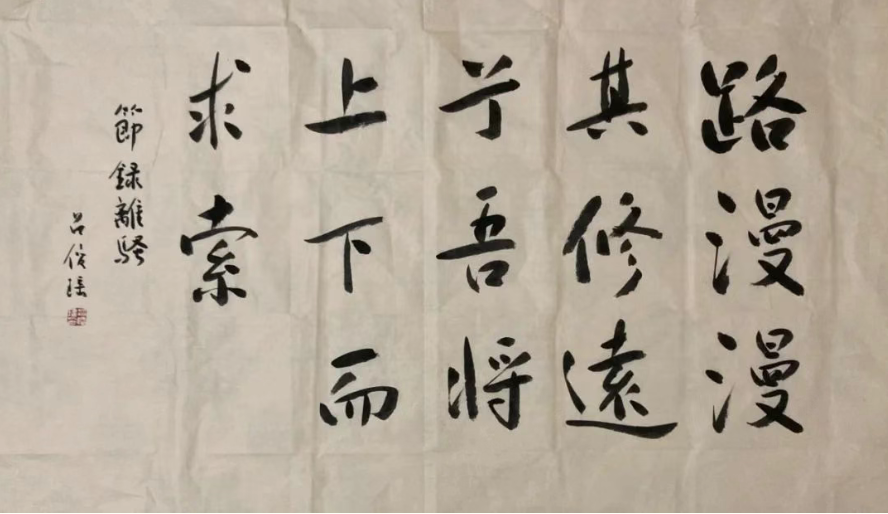 路漫漫
其修遠
兮吾將
上下而
求索
節録離騷
呂俊